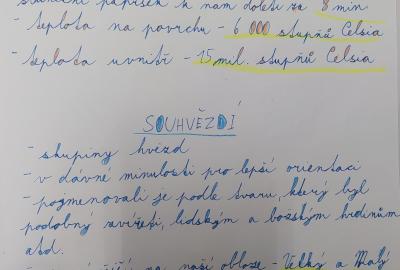 sluneční paprsek k nám doletí za 8 min
- teplota na povrchu - 6 000 stupňů Celsia
- teplota uvnitř - 15 mil. stupňů Celsia
SOUHVĚZDÍ
- skupiny hvězd
- v dávné minulosti pro lepší orientaci
- pojmenovali je podle tvaru, který byl
podobný zvířeti, lidským a božským hrdinům
atd.
na naší obloze - Velký a Malý